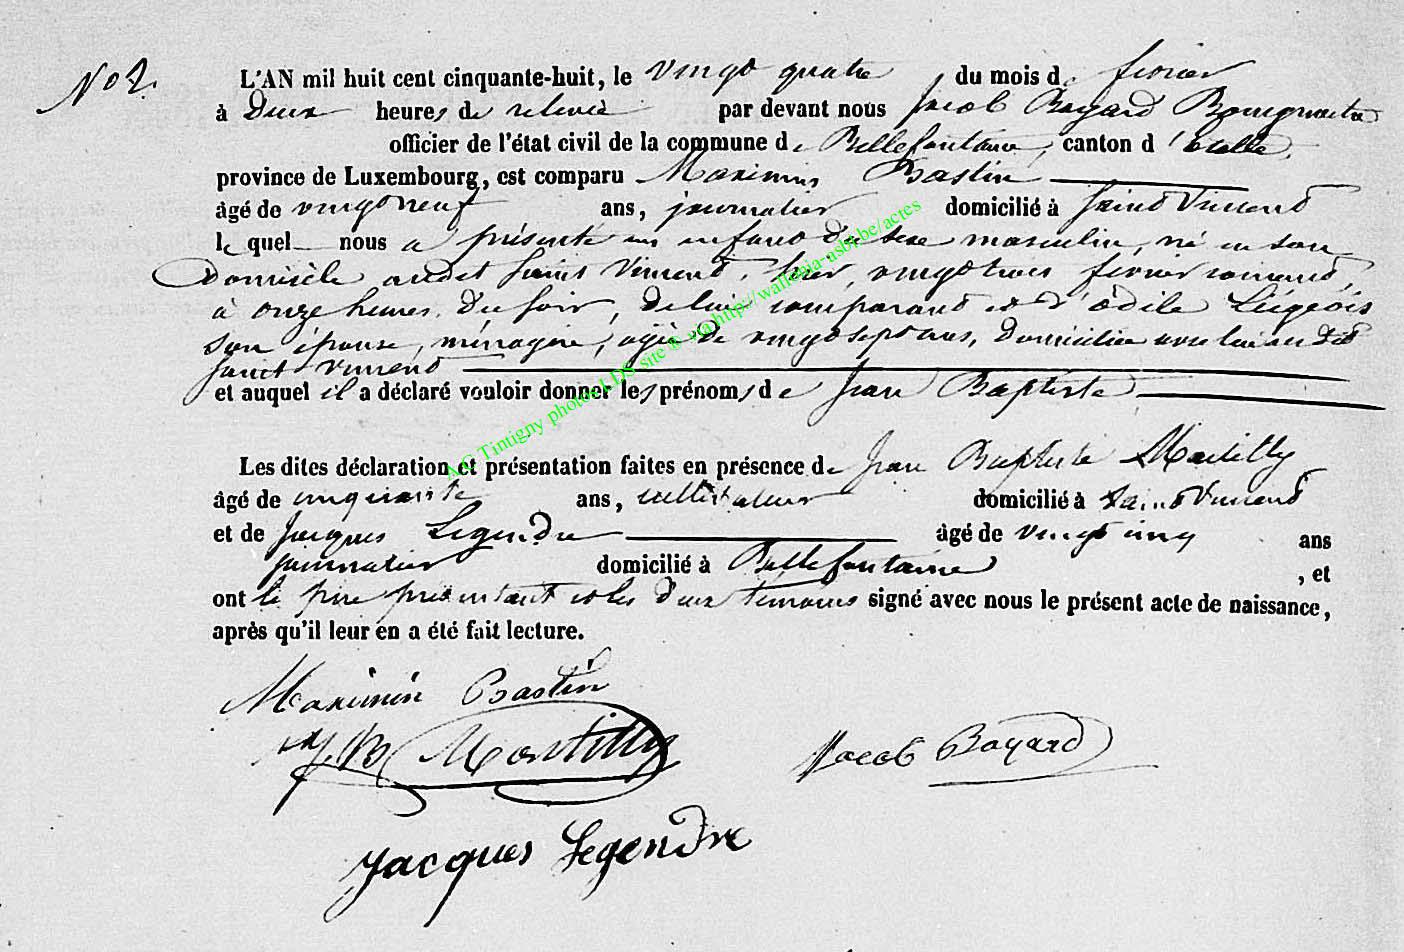 No 2.
L'AN mil huit cent cinquante-huit, le vingt quatre du mois de fevrier
à Deux heures de relevée par devant nous Jacob Bayard Bourgmestre
officier de l'état civil de la commune de Bellefontaine, canton d'Etalle,
province de Luxembourg, est comparu Maximin Bastin
âgé de vingt neuf ans, journalier domicilié à Saint Vincent
le quel nous a présenté un enfant du sexe masculin, né en son
Domicile audit Saint Vincent, hier, vingt trois février courant,
à onze heures du soir, de lui comparant et d'odile Liégeois
son épouse, ménagère, agée de vingt sept ans, domiciliée avec lui au dit
Saint Vincent
et auquel il a déclaré vouloir donner les prénoms de Jean Baptiste
Les dites déclaration et présentation faites en présence de Jean Baptiste Martilly
âgé de cinquante ans, cultivateur domicilié à Saint Vincent
et de Jacques Legendre âgé de vingt cinq ans
journalier domicilié à Bellefontaine , et
ont le père présentant et les deux témoins signé avec nous le présent acte de naissance,
après qu'il leur en a été fait lecture.
Maximin Bastin
J B Martilly
Jacob Bayard
Jacques Legendre
AC Tintigny photos LDS site via http://wallonia-asbl.be/actes